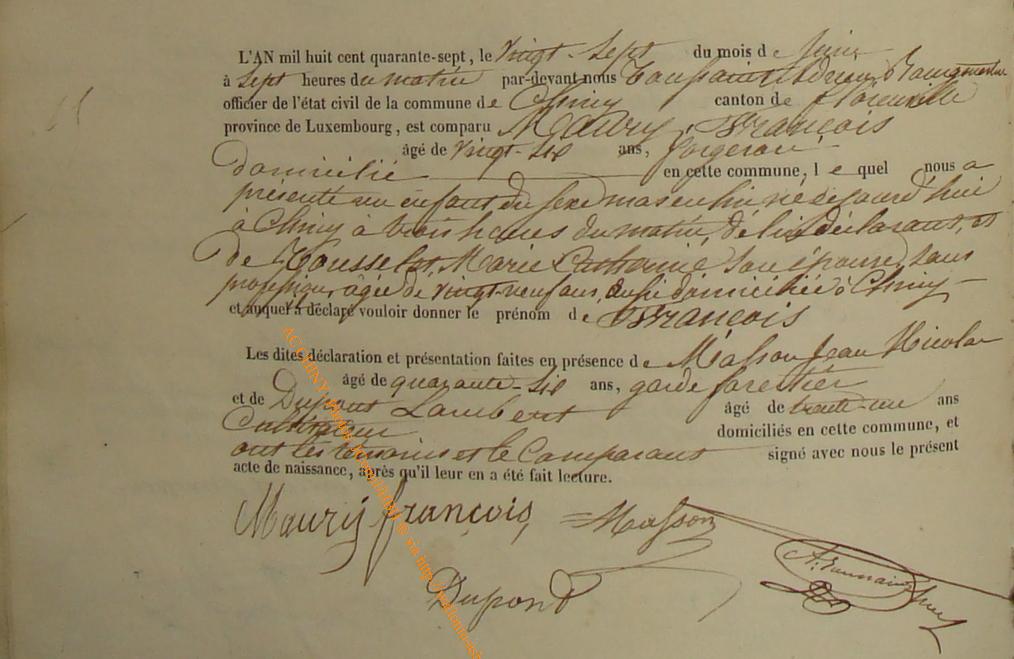 L'AN mil huit cent quarante-sept, le Vingt-Sept du mois de Juin
à Sept heures du matin par-devant nous Toussaint Adrien, Bourgmestre
officier de l'état civil de la commune de Chiny canton de florenville
province de Luxembourg, est comparu Maury, François
âgé de vingt-six ans, forgeron
domicilié en cette commune, lequel nous a
présenté un enfant du sexe masculin né ce jourd'hui
à Chiny à trois heures du matin, de lui déclarant, et
de Rousselet, Marie Catherine Son épouse, sans
profession, agée de vingt-neuf ans, aussi domiciliée à Chiny
et auquel a déclaré vouloir donner le prénom de François
Les dites déclaration et présentation faites en présence de Masson Jean Nicolas
âgé de quarante-six ans, garde forestier
et de Dupont Lambert âgé de trente-un ans
Cultivateur domiciliés en cette commune, et
ont les témoins et le Comparant signé avec nous le présent
acte de naissance, après qu'il leur en a été fait lecture.
Maury françois, Masson
A. Toussaint
Dupond